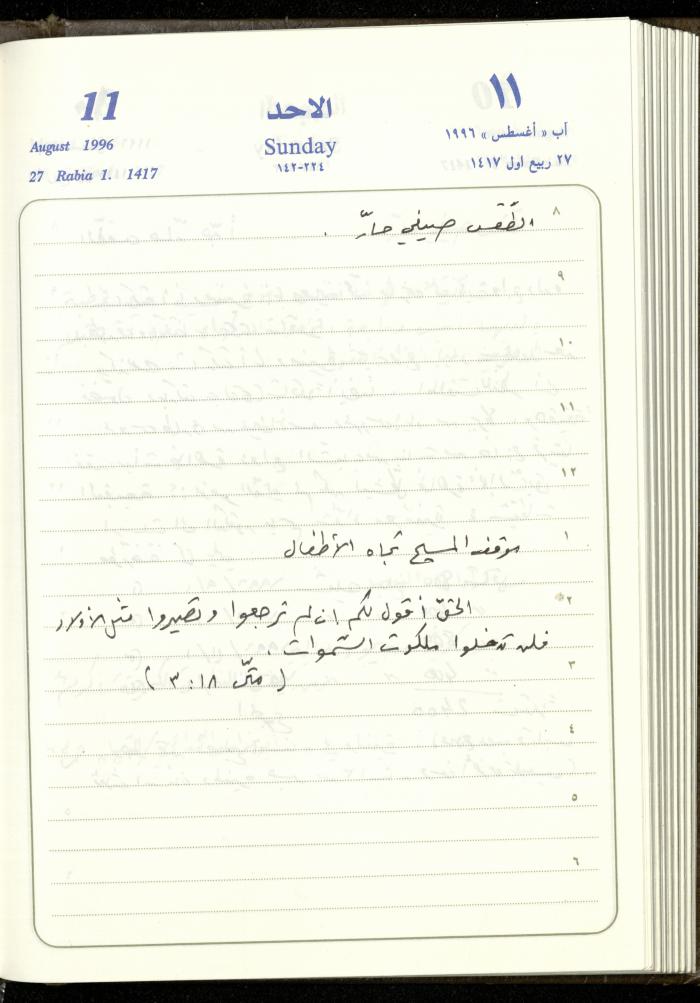 11
August 1996
27 Rabia 1. 1417
الاحد
Sunday
١٤٢-٢٢٤
١١
آب « أغسطس » ١٩٩٦
٢٧ ربيع اول ١٤١٧
٨
الطّقس صيفي حارّ .
٩
١٠
١١
١٢
١
موقف المسيح تجاه الأطفال
٢
الحقّ أقول لكم ان لم ترجعوا وتصيروا مثل الأولاد
فلن تدخلوا ملكوت السّموات .
٣
( متّى ١٨ : ٣ )
٤
٥
٦